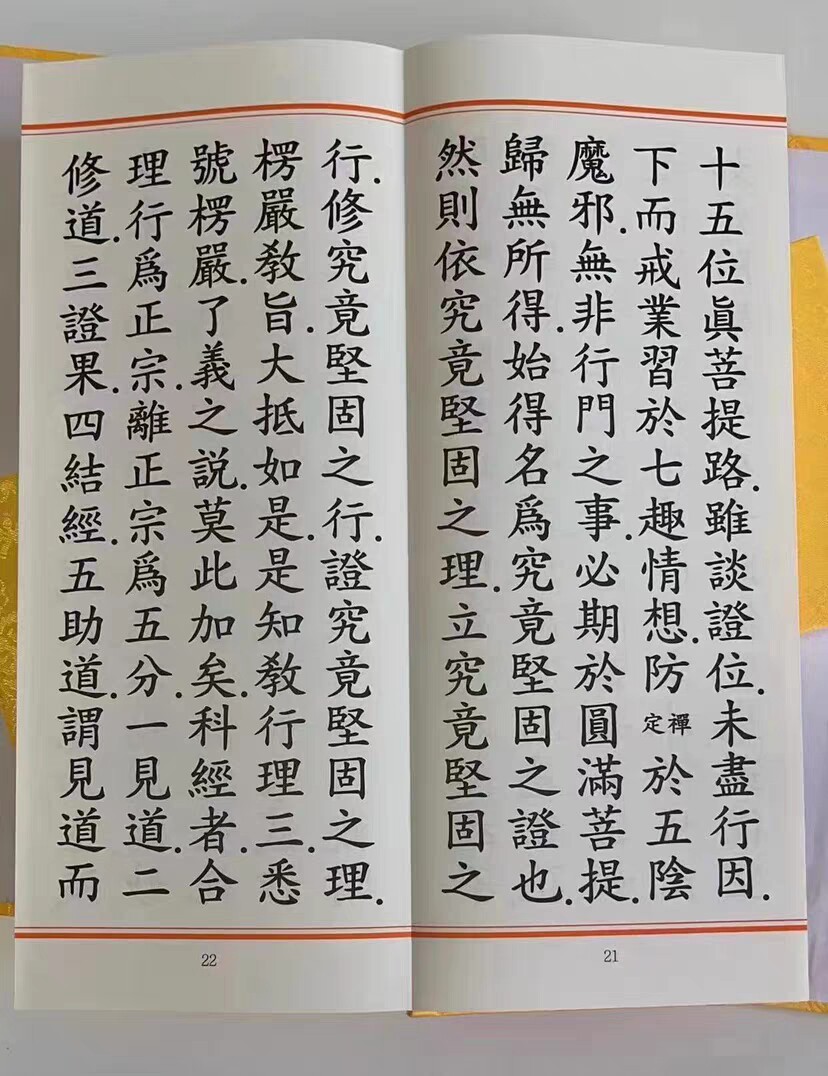 十五位眞菩提路.雖談證位.未盡行因.
下而戒業習於七趣情想.防禪定於五陰
魔邪.無非行門之事.必期於圓滿菩提.
歸無所得.始得名爲究竟堅固之證也.
然則依究竟堅固之理.立究竟堅固之
21
行.修究竟堅固之行.證究竟堅固之理.
楞嚴教旨.大抵如是.是知教行理三.悉
號楞嚴.了義之說.莫此加矣.科經者.合
理行爲正宗.離正宗爲五分.一見道.二
修道.三證果.四結經.五助道.謂見道而
22